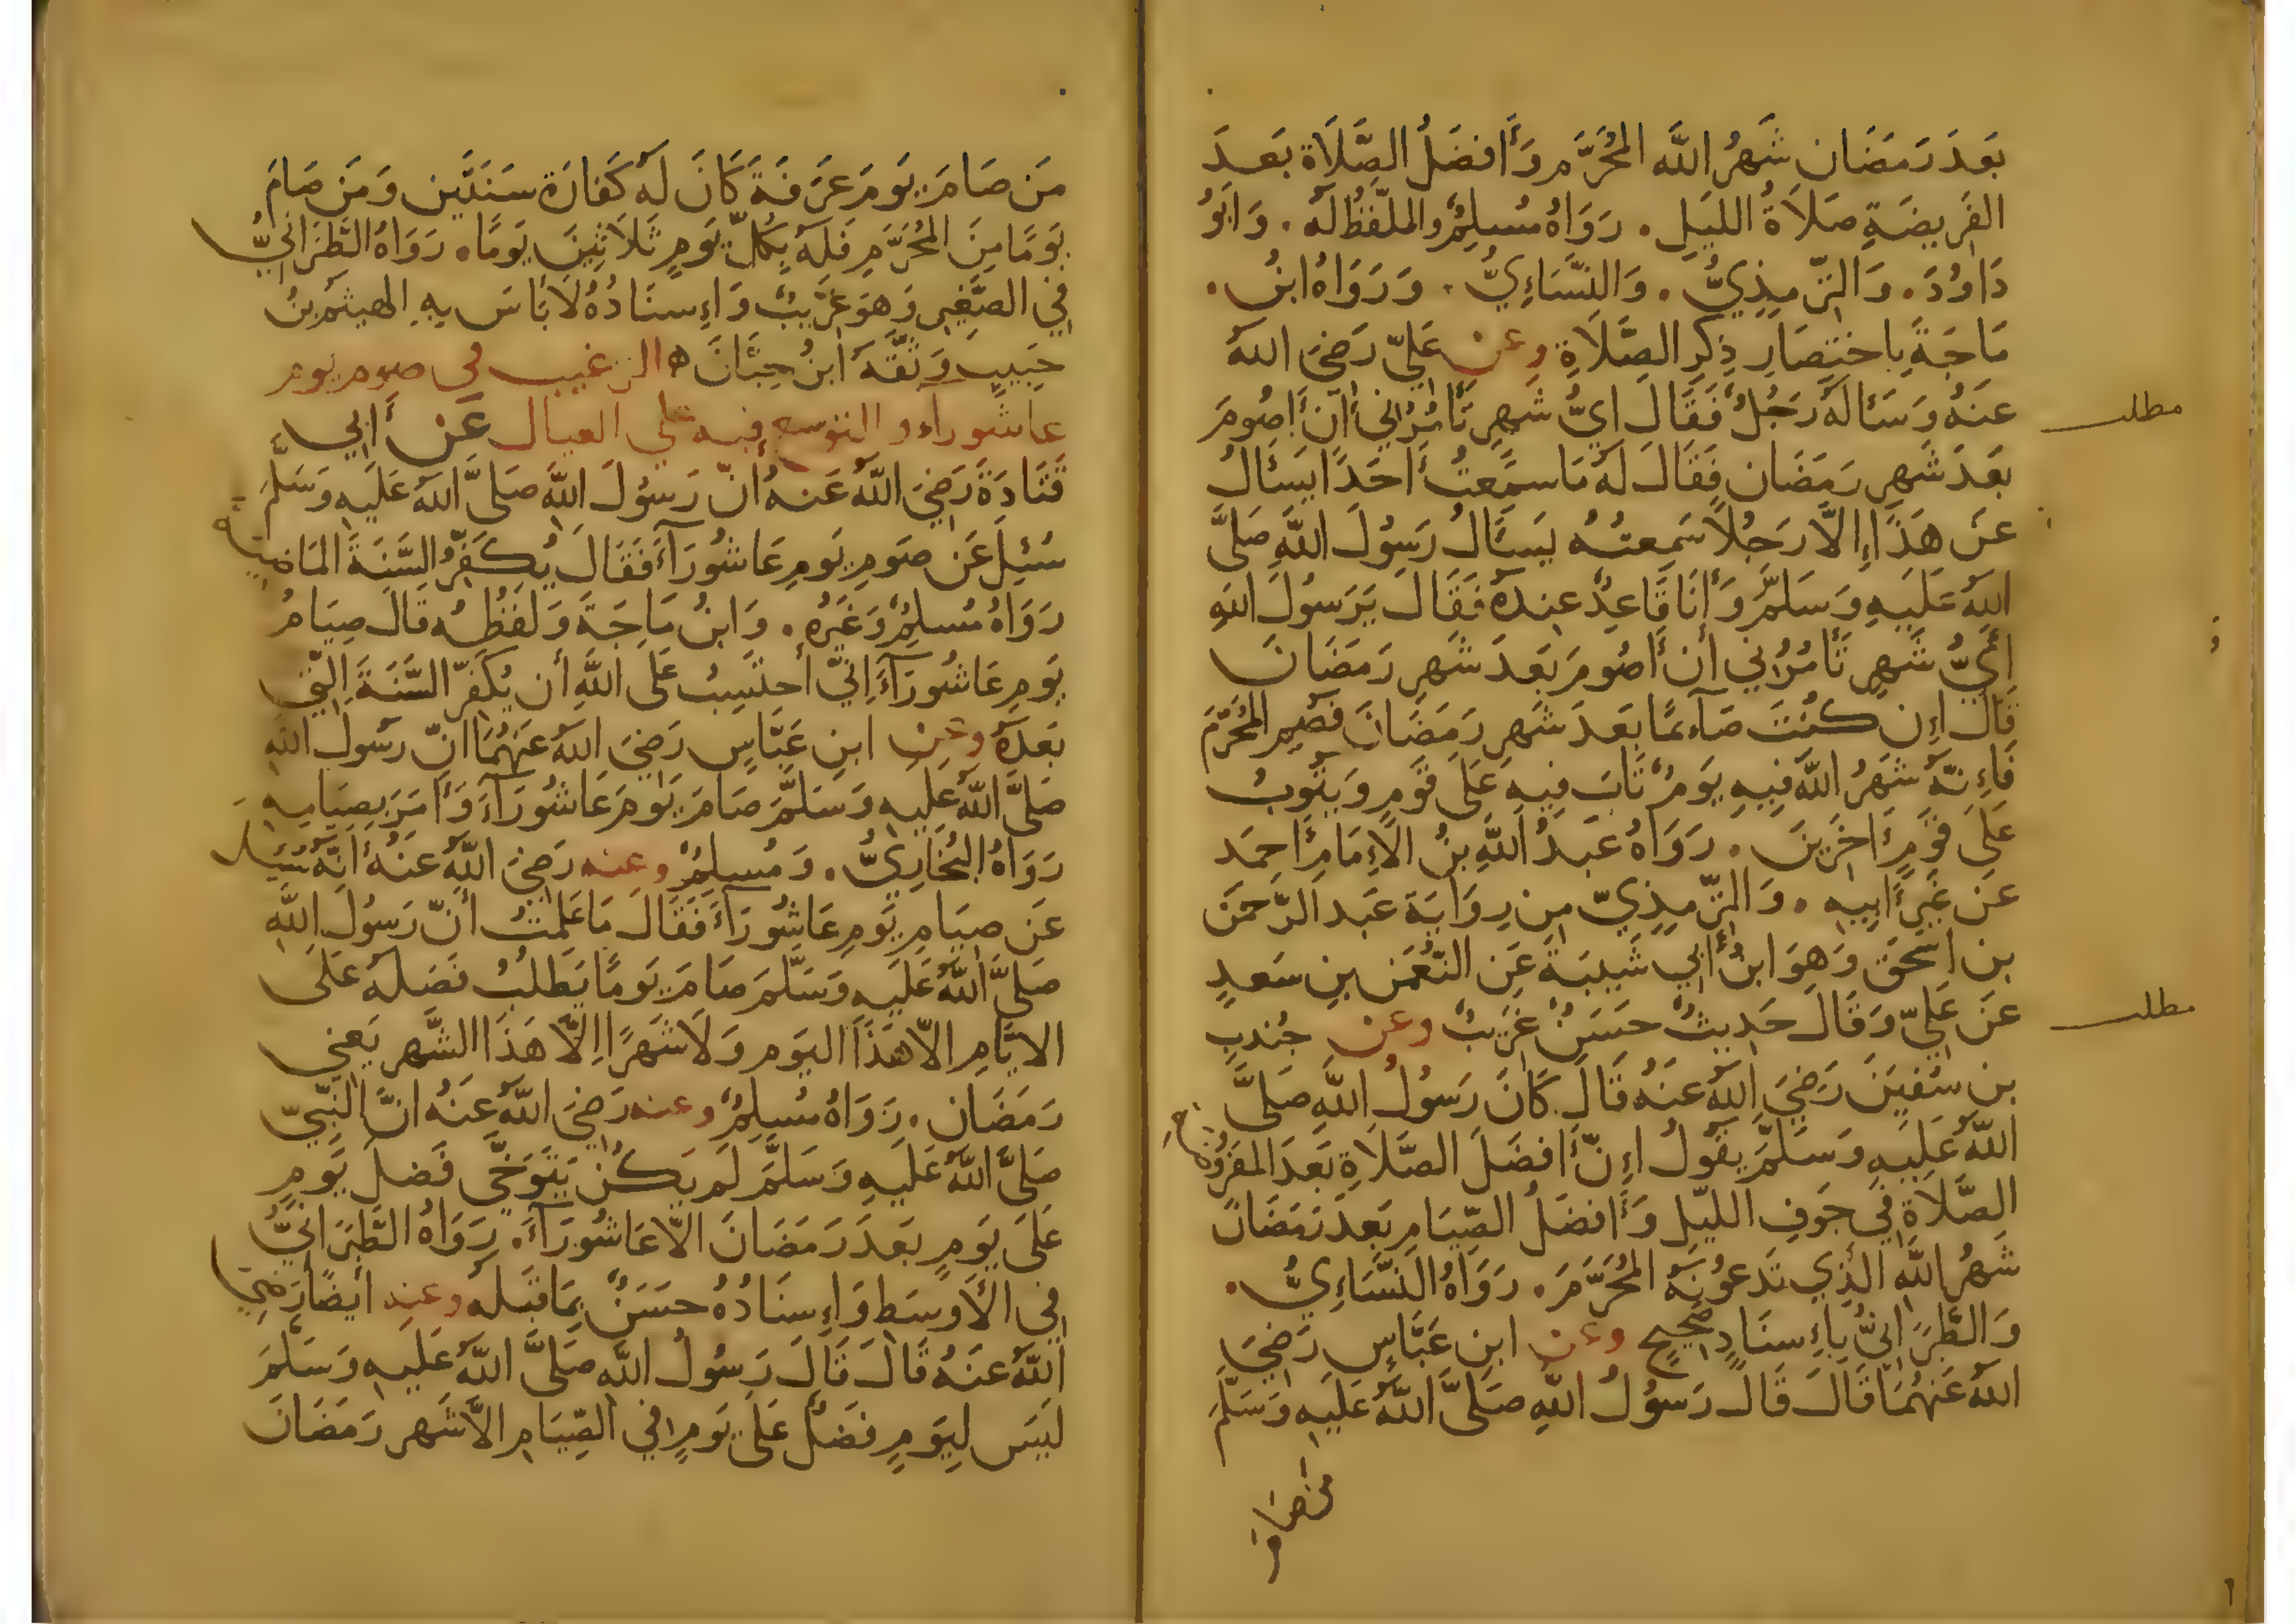 بَعدَ رَمَضَان شَهرُ اللَّه المُحَرَّم وَأَفضَلُ الصَّلَاة بَعدَ
الفَرِيضَةِ صَلَاةُ اللَيلِ . رَوَاهُ مُسلِمٌ واللَّفظُ لَهُ . وَأَبُو
دَاوُدَ . وَالتِّرمِذِيُّ . وَالنَّسَاءِيُّ . وَرَوَاهُ ابنُ .
مَاجَةَ بِاختِصَارِ ذِكرِ الصَّلَاةِ وعن عَلِيّ رَضِيَ اللهُ
عَنهُ وَسَأَلَهُ رَجُلٌ فَقَالَ أَيُّ شَهرٍ تَأمُرُنِي أَن أَصُومَ
مطلب
بَعَدَ شَهرِ رَمَضَان فَقَالَ لَهُ مَا سَمِعتُ أَحَدًا يَسأَلُ
عَن هَذَا إِلَّا رَجُلًا سَمِعتُهُ يَسأَلُ رَسُولَ اللَّهِ صَلَّى
اللهُ عَلَيهِ وَسَلَّمَ وَأَنَا قَاعِدٌ عِندَهُ فَقَالَ يَرَسُولَ اللهِ
أَيُّ شَهرٍ تَأمُرُنِي أَن أَصُومَ بَعَدَ شَهرِ رَمَضَانَ
قَالَ إِن كُنتَ صَآئمًا بَعدَ شَهرِ رَمَضَانَ فَصُمِ المُحَرَّمَ
فَإِنَّهُ شَهرُ اللَّهِ فِيهِ يَومٌ تَابَ فِيهِ عَلَى قَومٍ وَيَتُوبُ
عَلَى قَومٍ أَاخَرِينَ . رَوَاهُ عَبدُ اللَّهِ بنُ الإِمَامِ أَحمَد
عَن غَيرِ أَبِيهِ . وَالتِّرمِذِيّ مِن رِوَايَة عَبد الرَّحمَن
بن اسحَق وَهُوَ ابنُ أَبِي شَيبَةَ عَنِ النُّعمَن بنِ سَعدٍ
عَن عَلِيّ وَقَالَ حَدِيثٌ حَسَنٌ غَرِيبٌ وعن جُندبِ
مطلب
بن سُفيَنَ رَضِيَ اللهُ عَنهُ قَالَ كَانَ رَسُولُ اللَّهِ صَلَّى
اللَّهُ عَلَيهِ وَسَلَّمَ يَقُولُ إِنَّ أَفضَلَ الصَّلَاةِ بَعدَ المَفرُوضَةِ
الصَّلَاةُ فِي جَوفِ الليلِ وَأَفضَلُ الصِّيَامِ بَعدَ رَمَضَان
شَهرُ اللَّهِ الَّذِي تَدعُونَهُ المُحَرَّمَ . رَوَاهُ النَّسَاءِيُّ .
وَالطَّبَرَانِيُّ بِإِسنَادٍ صَحِيحٍ وعن ابنِ عَبَّاسٍ رَضِيَ
اللهُ عَنهُمَا قَالَ قَالَ رَسُولُ اللَّهِ صَلَّى اللَّهُ عَلَيهِ وَسَلَّمَ
من صام
مَن صَامَ يَومَ عَرَفَةَ كَانَ لَهُ كَفَارَة سَنَتَين وَمَن صَامَ
يَومًا مِنَ المُحَرَّمِ فَلَهُ بِكُلِّ يَومٍ ثَلَاثِينَ يَومًا . رَوَاهُ الطَّبَرَانِيُّ
فِي الصَّغِيرِ وَهُوَ غَرِيبٌ وَإِسنَادُهُ لَا بَأسَ بِهِ الهيثمُ بنُ
حَبِيبٍ وَثَّقَهُ ابنُ حِبَّانَ ه الترغيب في صوم يوم
عاشورآء والتوسع فيه على العيال عَن أَبِي
قَتَادَةَ رَضِيَ اللَّهُ عَنهُ أَنَّ رَسُولَ اللَّه صَلَّى اللَّهُ عَلَيهِ وَسَلَّمَ
سُئِلَ عَن صَومِ يَومِ عَاشُورَآءَ فَقَالَ يُكَفِّرُ السَّنَةَ المَاضِيَةَ
رَوَاهُ مُسلِمٌ وَغَيرُه . وَابنُ مَاجَةَ وَلَفظُهُ قَالَ صِيَامُ
يَومِ عَاشُورَآءَ إِنِّي أَحتَسِبُ عَلَى اللَّهِ أَن يُكَفِّرَ السَّنَةَ الَّتِي
بَعدَهُ وعن ابنِ عَبَّاسٍ رَضِيَ اللهُ عَنهُمَا أَنَّ رَسُولَ اللَّهِ
صَلَّى اللَّهُ عَلَيهِ وَسَلَّمَ صَامَ يَومَ عَاشُورَآءَ وَأَمَرَ بِصِيَامِهِ
رَوَاهُ البُخَارِيُّ . وَمُسلِمٌ وعنه رَضِيَ اللَّهُ عَنهُ أَنَّهُ سُئِلَ
عَن صِيَامِ يَومِ عَاشُورَآءَ فَقَالَ مَا عَلِمتُ أَنَّ رَسُولَ اللَّهِ
صَلَّى اللَّهُ عَلَيهِ وَسَلَّمَ صَامَ يَومًا يَطلُبُ فَضلَهُ عَلَى
الايَّامِ إلَّا هَذَا اليَوم وَلَا شَهرًا إِلَّا هَذَا الشَّهر يَعنِي
رَمَضَان . رَوَاهُ مُسلِمٌ وعنه رَضِيَ اللَّهُ عَنهُ أَنَّ النَّبِيّ
صَلَّى اللَّهُ عَلَيهِ وَسَلَّمَ لَم يَكُن يَتَوَخَّى فَضلَ يَومٍ
عَلَى يَومٍ بَعدَ رَمَضَانَ الَّا عَاشُورَآءَ . رَوَاهُ الطَّبَرَانِيُّ
فِي الأَوسَطِ وَإِسنَادُهُ حَسَنٌ بِمَا قَبلَه وعنه أَيضًا رَضِيَ
اللَّهُ عَنهُ قَالَ قَالَ رَسُولُ اللَّهِ صَلَّى اللَّهُ عَلَيهِ وَسَلَّمَ
لَيسَ لِيَومٍ فَضلٌ عَلَى يَومٍ فِي الصِّيَامِ الَّا شَهر رَمَضَانَ